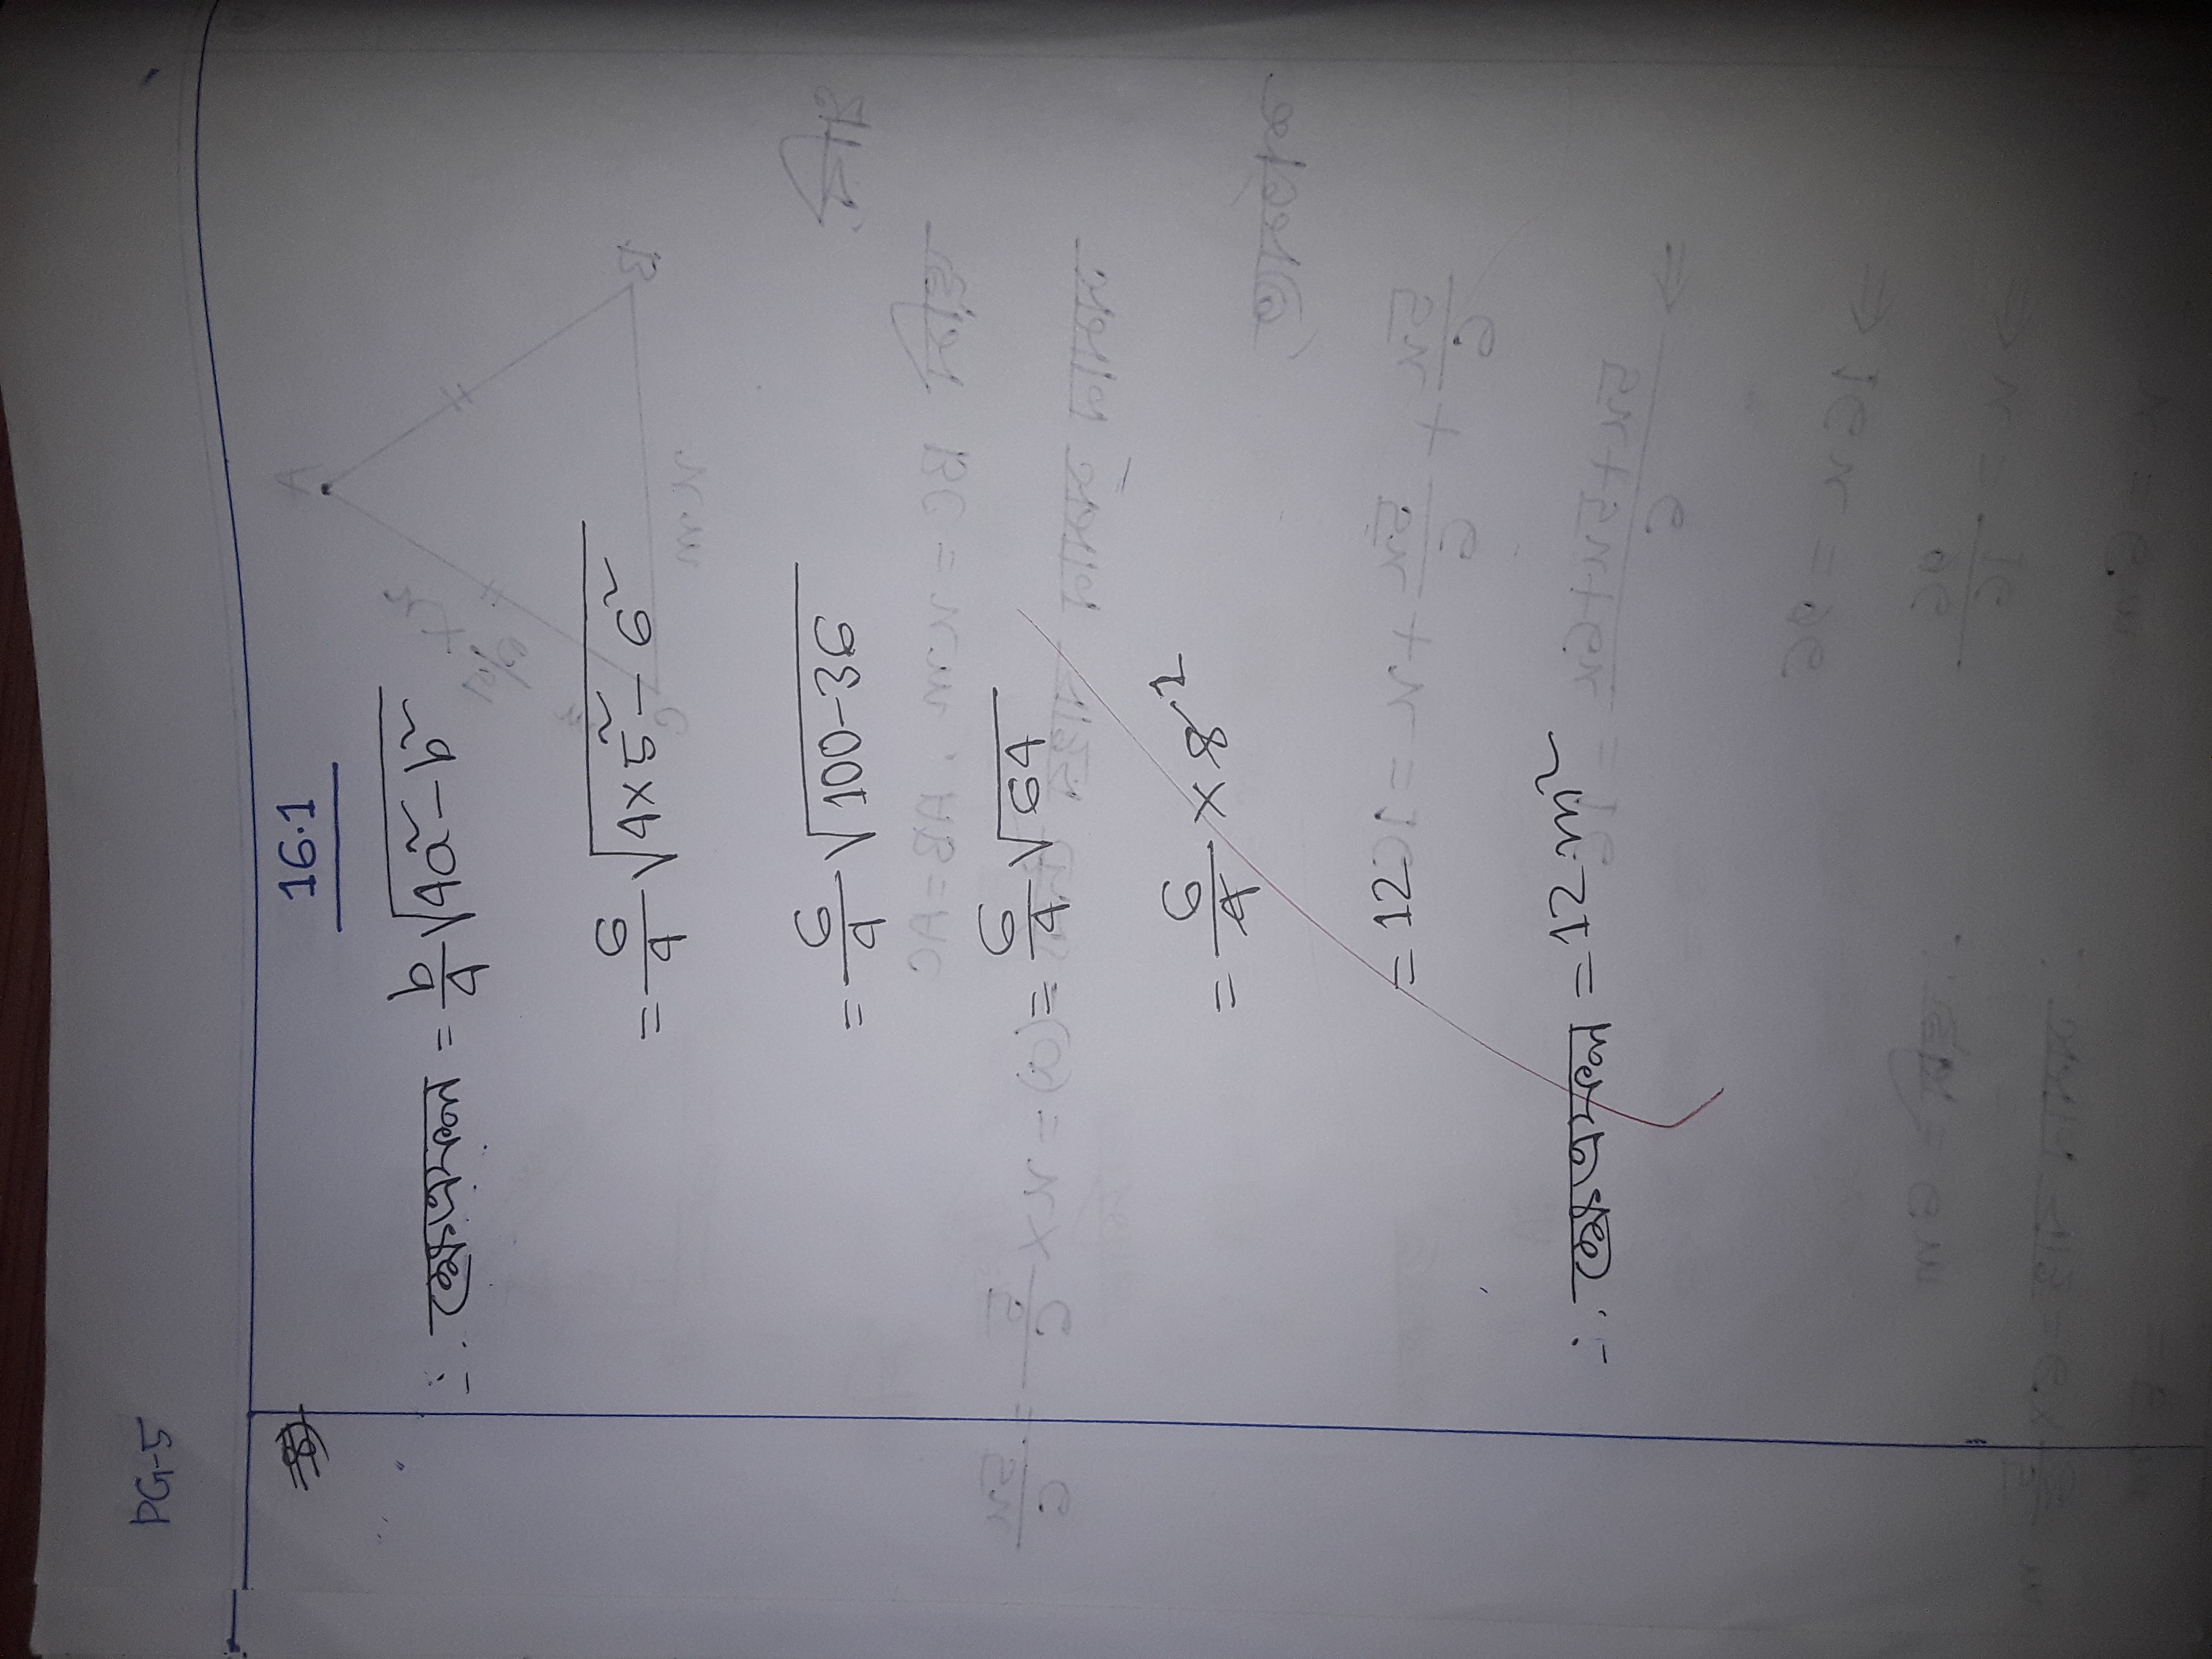 PG-5
16.1
∴ ক্ষেত্রফল = b/4 √(4a² - b²)
= 6/4 √(4×5² - 6²)
= 6/4 √(100-36)
= 6/4 √64
= 6/4 × 8 2
= 12
∴ ক্ষেত্রফল = 12 m²